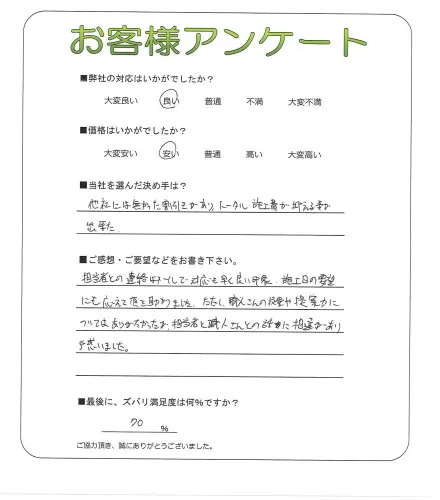 お客様アンケート
■弊社の対応はいかがでしたか？
大変良い 良い 普通 不満 大変不満
■価格はいかがでしたか？
大変安い 安い 普通 高い 大変高い
■当社を選んだ決め手は？
他社には無かった割引きがあり、トータル施工費が抑える事が
出来た
■ご感想・ご要望などをお書き下さい。
担当者との連絡は 対応も早く良い印象、施工日の要望
にも応えて頂き助かりました。ただし、職人さんの 提案力に
ついてはありがたかったが、担当者と職人さんとの 相違があり
戸惑いました。
■最後に、ズバリ満足度は何%ですか？
70 %
ご協力頂き、誠にありがとうございました。